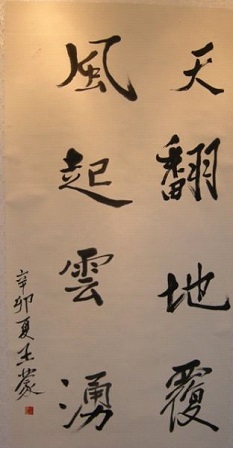 天翻地覆
風起雲湧
辛卯夏志蒙